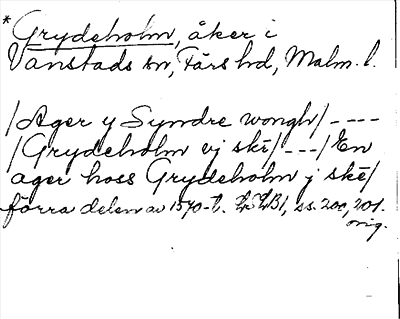 * Grydeholm, åker i
Vanstads sn, Färs hd, Malm. l.
/Ager y Syndre wongh/----
/Grydeholm vj skē/---/En
ager hoss Grydeholm j skē/
förra delen av 1570-t. ss. 200, 201.
orig.